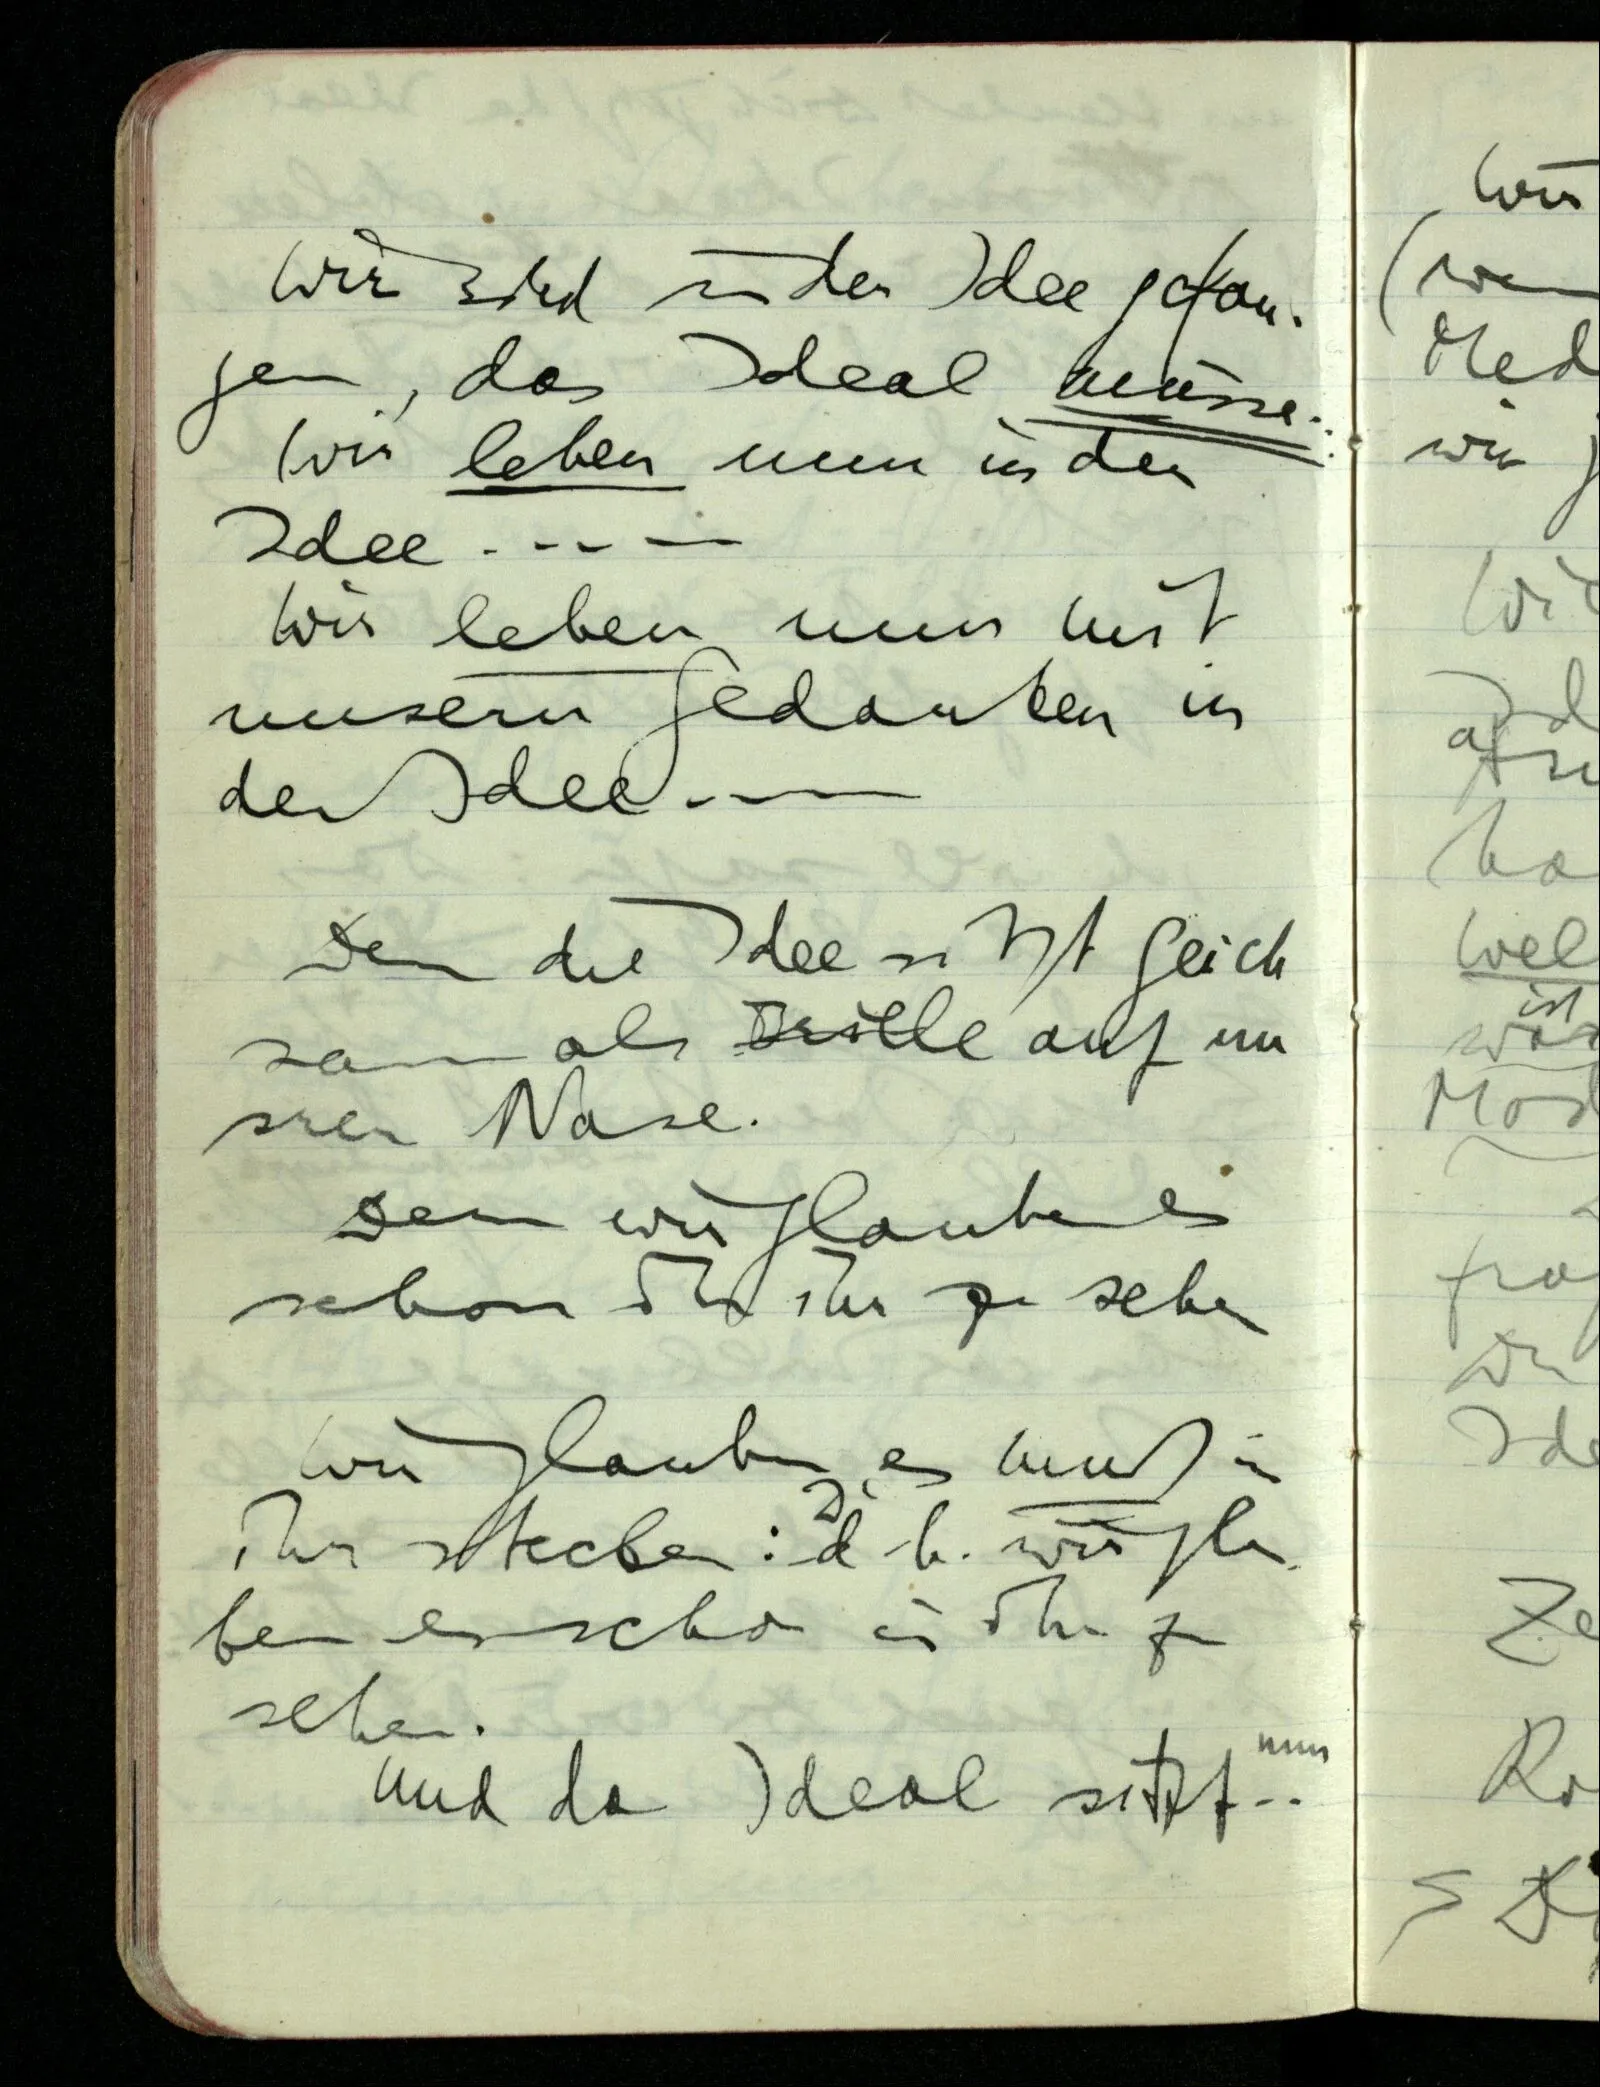 Wir sind in der Idee gefan-
gen, das Ideal müsse..
Wir leben nun in der
Idee - - - -
Wir leben nun mit
unsern Gedanken in
der Idee. - - -
Denn die Idee sitzt gleich
sam als Brille auf un
srer Nase.
Denn wir glauben es
schon in ihr zu sehen
Wir glauben, es muß in
ihr stecken: d.h. wir glau-
ben es schon in ihr zu
sehen.
Und das Ideal sitzt nun - -
Wir
(
wir
ist